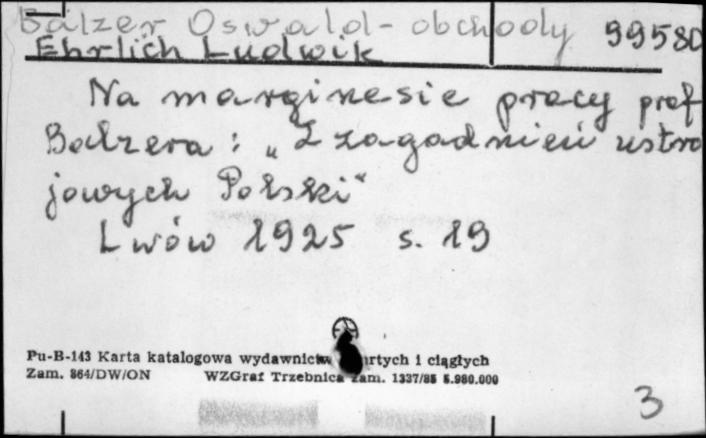 Balzer Oswald - obchody 99580
Ehrlich Ludwik
Na marginesie pracy prof
Balzera : „Z zagadnień ustro
jowych Polski"
Lwów 1925 s. 19
Pu-B-143 Karta katalogowa wydawnictw zwartych i ciągłych
Zam. 864/DW/ON WZGraf Trzebnica zam. 1337/85 5.980.000
3